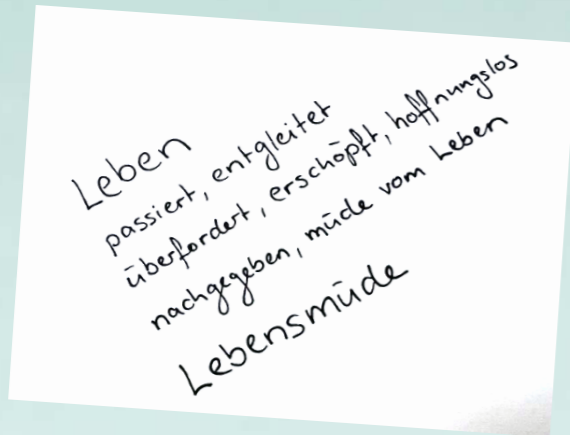 Leben
passiert, entgleitet
überfordert, erschöpft, hoffnungslos
nachgegeben, müde vom Leben
Lebensmüde